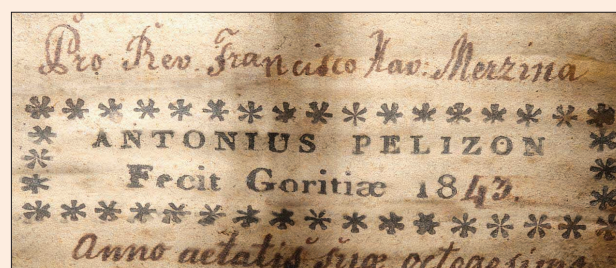 Pro Rev. Francisco Xav. Merzina
ANTONIUS PELIZON
Fecit Goritiæ 1843.
Anno aetatis suae octogesimo